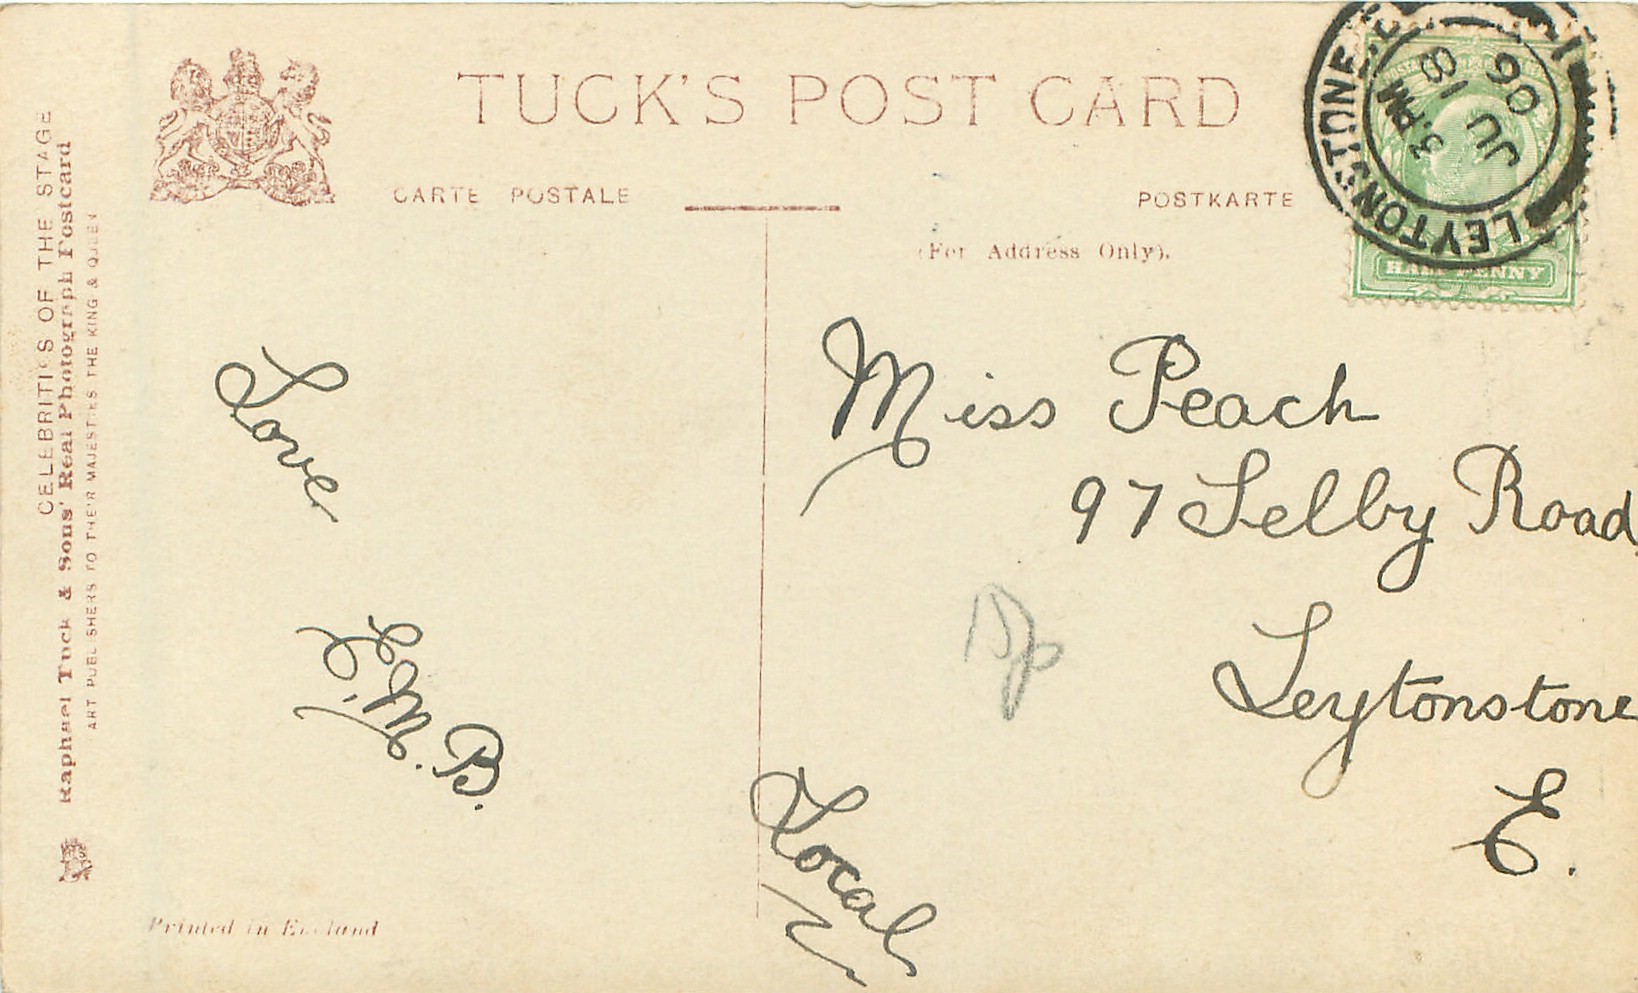 TUCK'S POST CARD
CARTE POSTALE
POSTKARTE
(For Address Only).
CELEBRITIES OF THE STAGE
Raphael Tuck & Sons' Real Photograph Postcard
ART PUBLISHERS TO THEIR MAJESTIES THE KING & QUEEN
LEYTONSTONE
3. PM
JU 18
06
HALF PENNY
Love
E.M.B.
Miss Peach
97 Selby Road,
Leytonstone
E.
Local
Printed in England